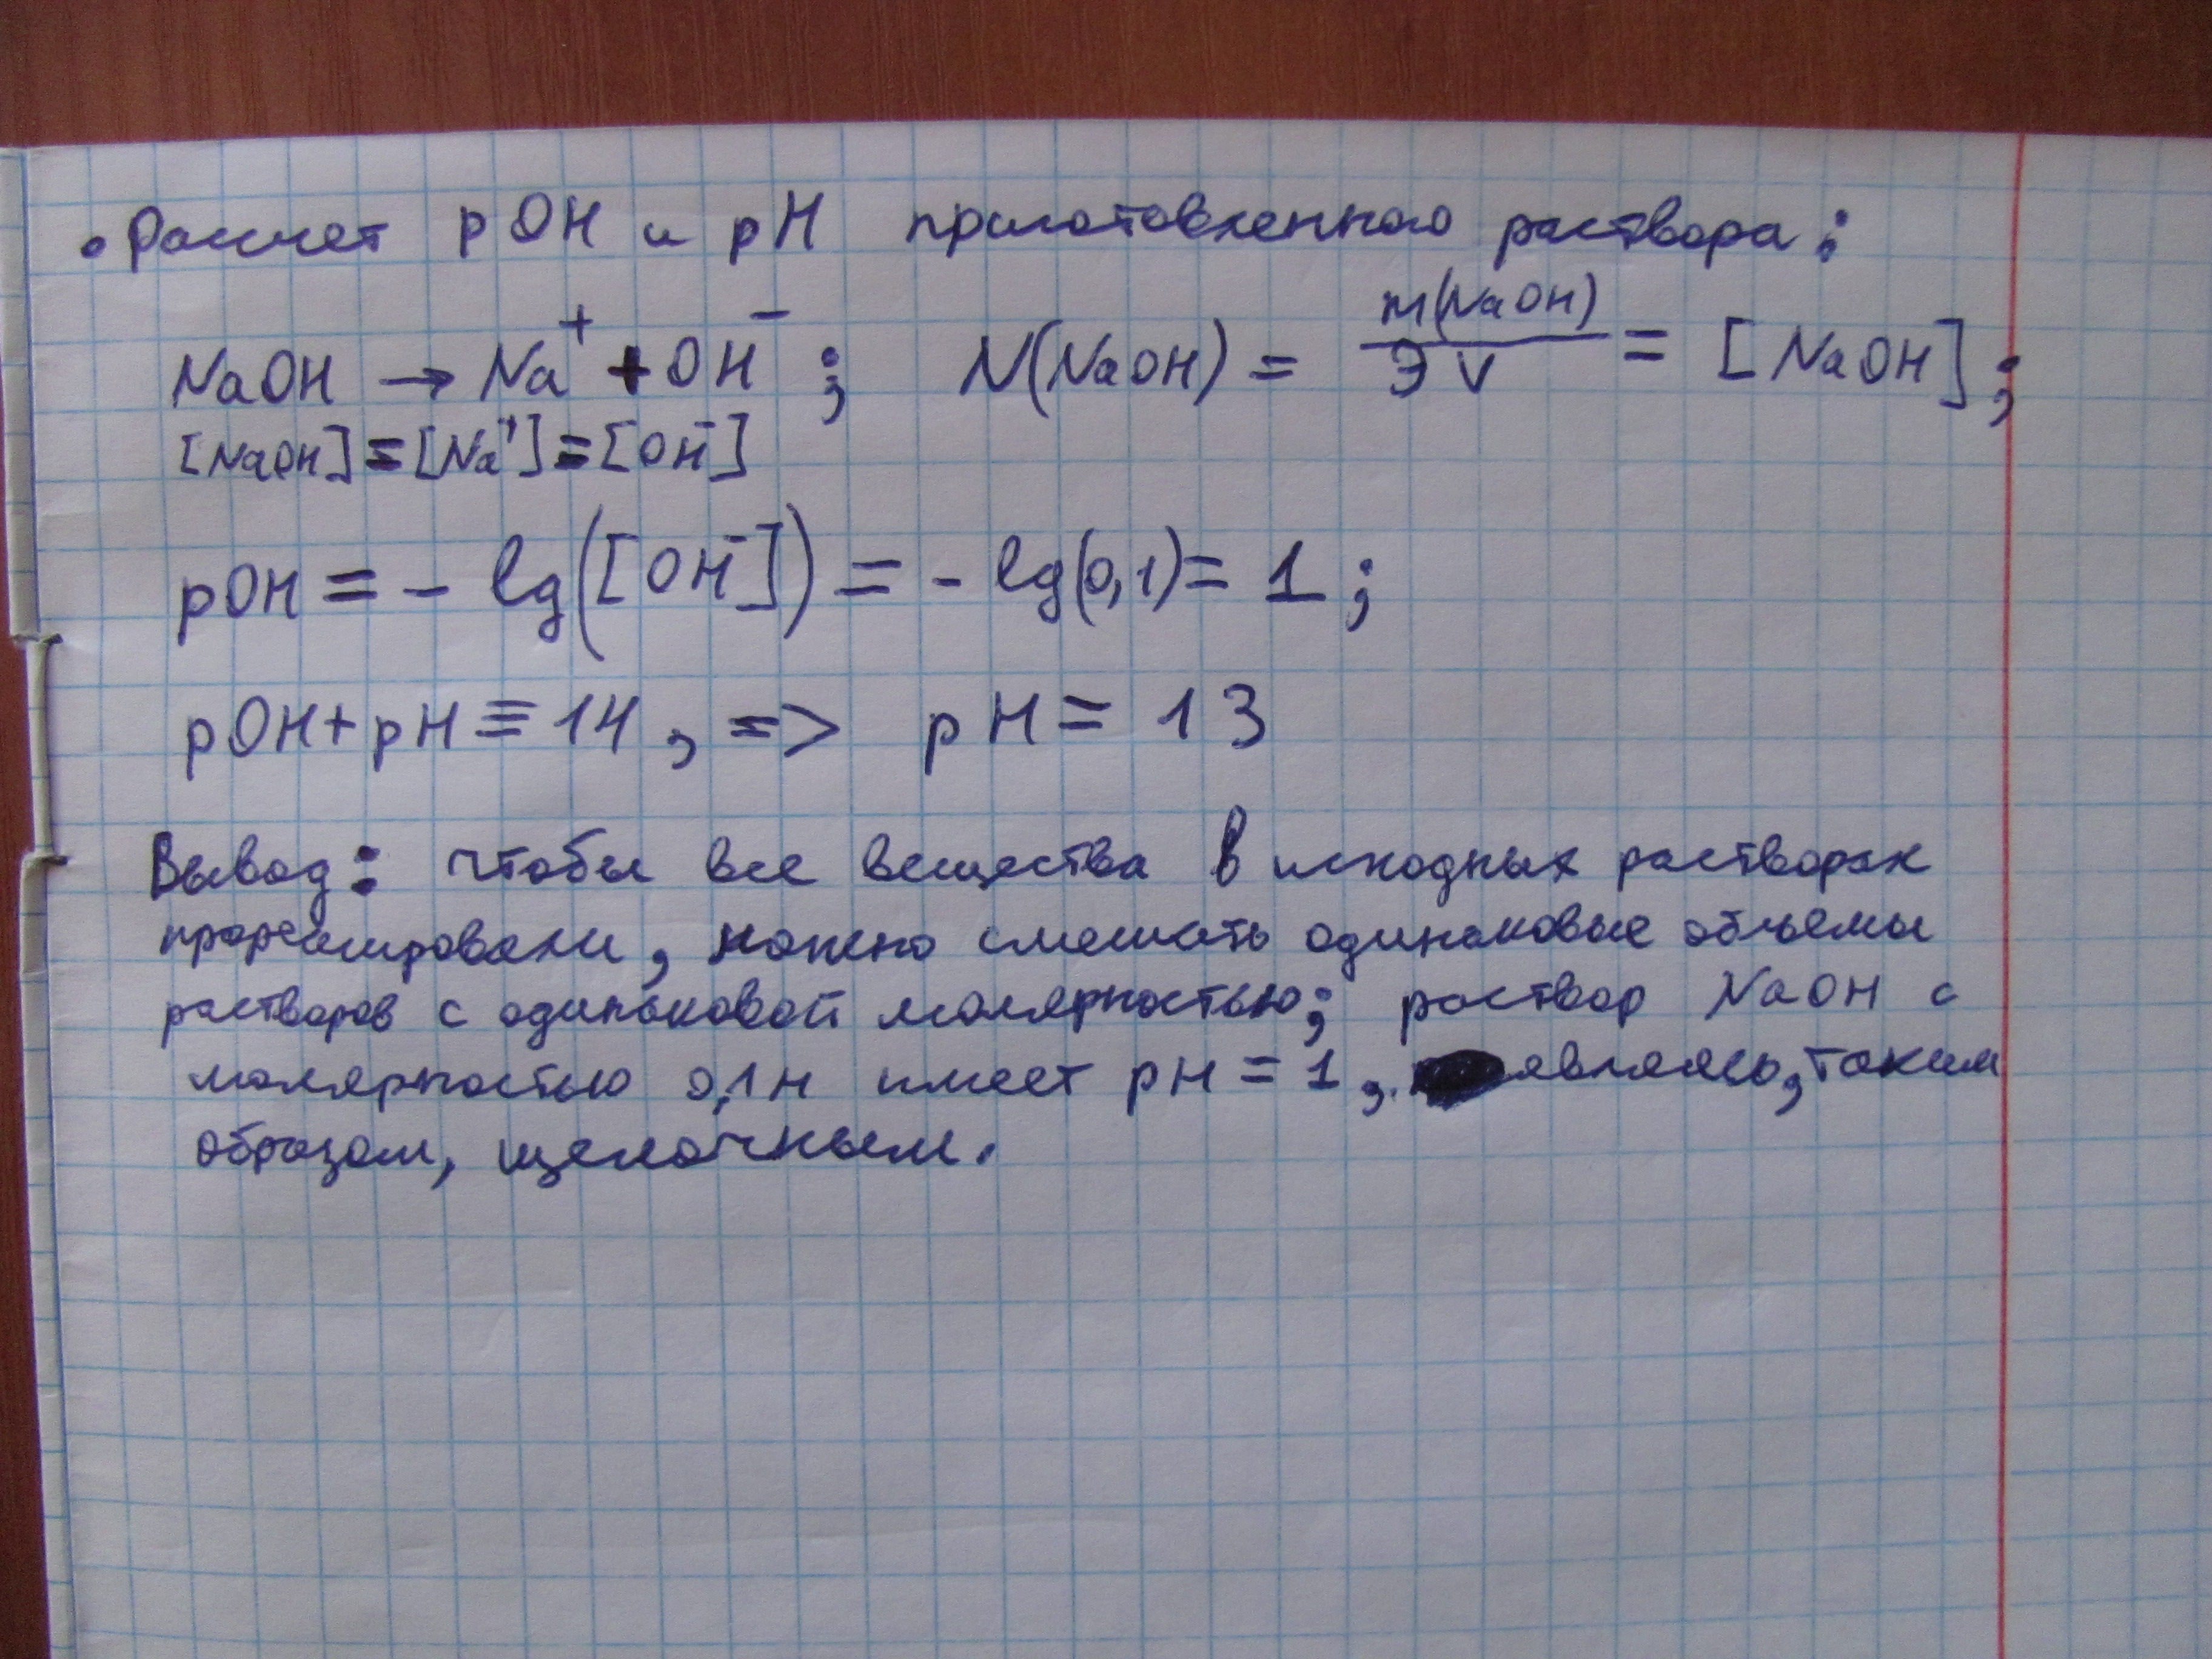 • Расчет pOH и pH приготовленного раствора:
NaOH → Na⁺ + OH⁻ ; N(NaOH) = m(NaOH)/ЭV = [NaOH];
[NaOH] = [Na⁺] = [OH⁻]
pOH = - lg([OH⁻]) = - lg(0,1) = 1;
pOH + pH ≡ 14, => pH = 13
Вывод: чтобы все вещества в исходных растворах
прореагировали, нужно смешать одинаковые объемы
растворов с одинаковой молярностью; раствор NaOH с
молярностью 0,1н имеет pH = 1, являясь, таким
образом, щелочным.